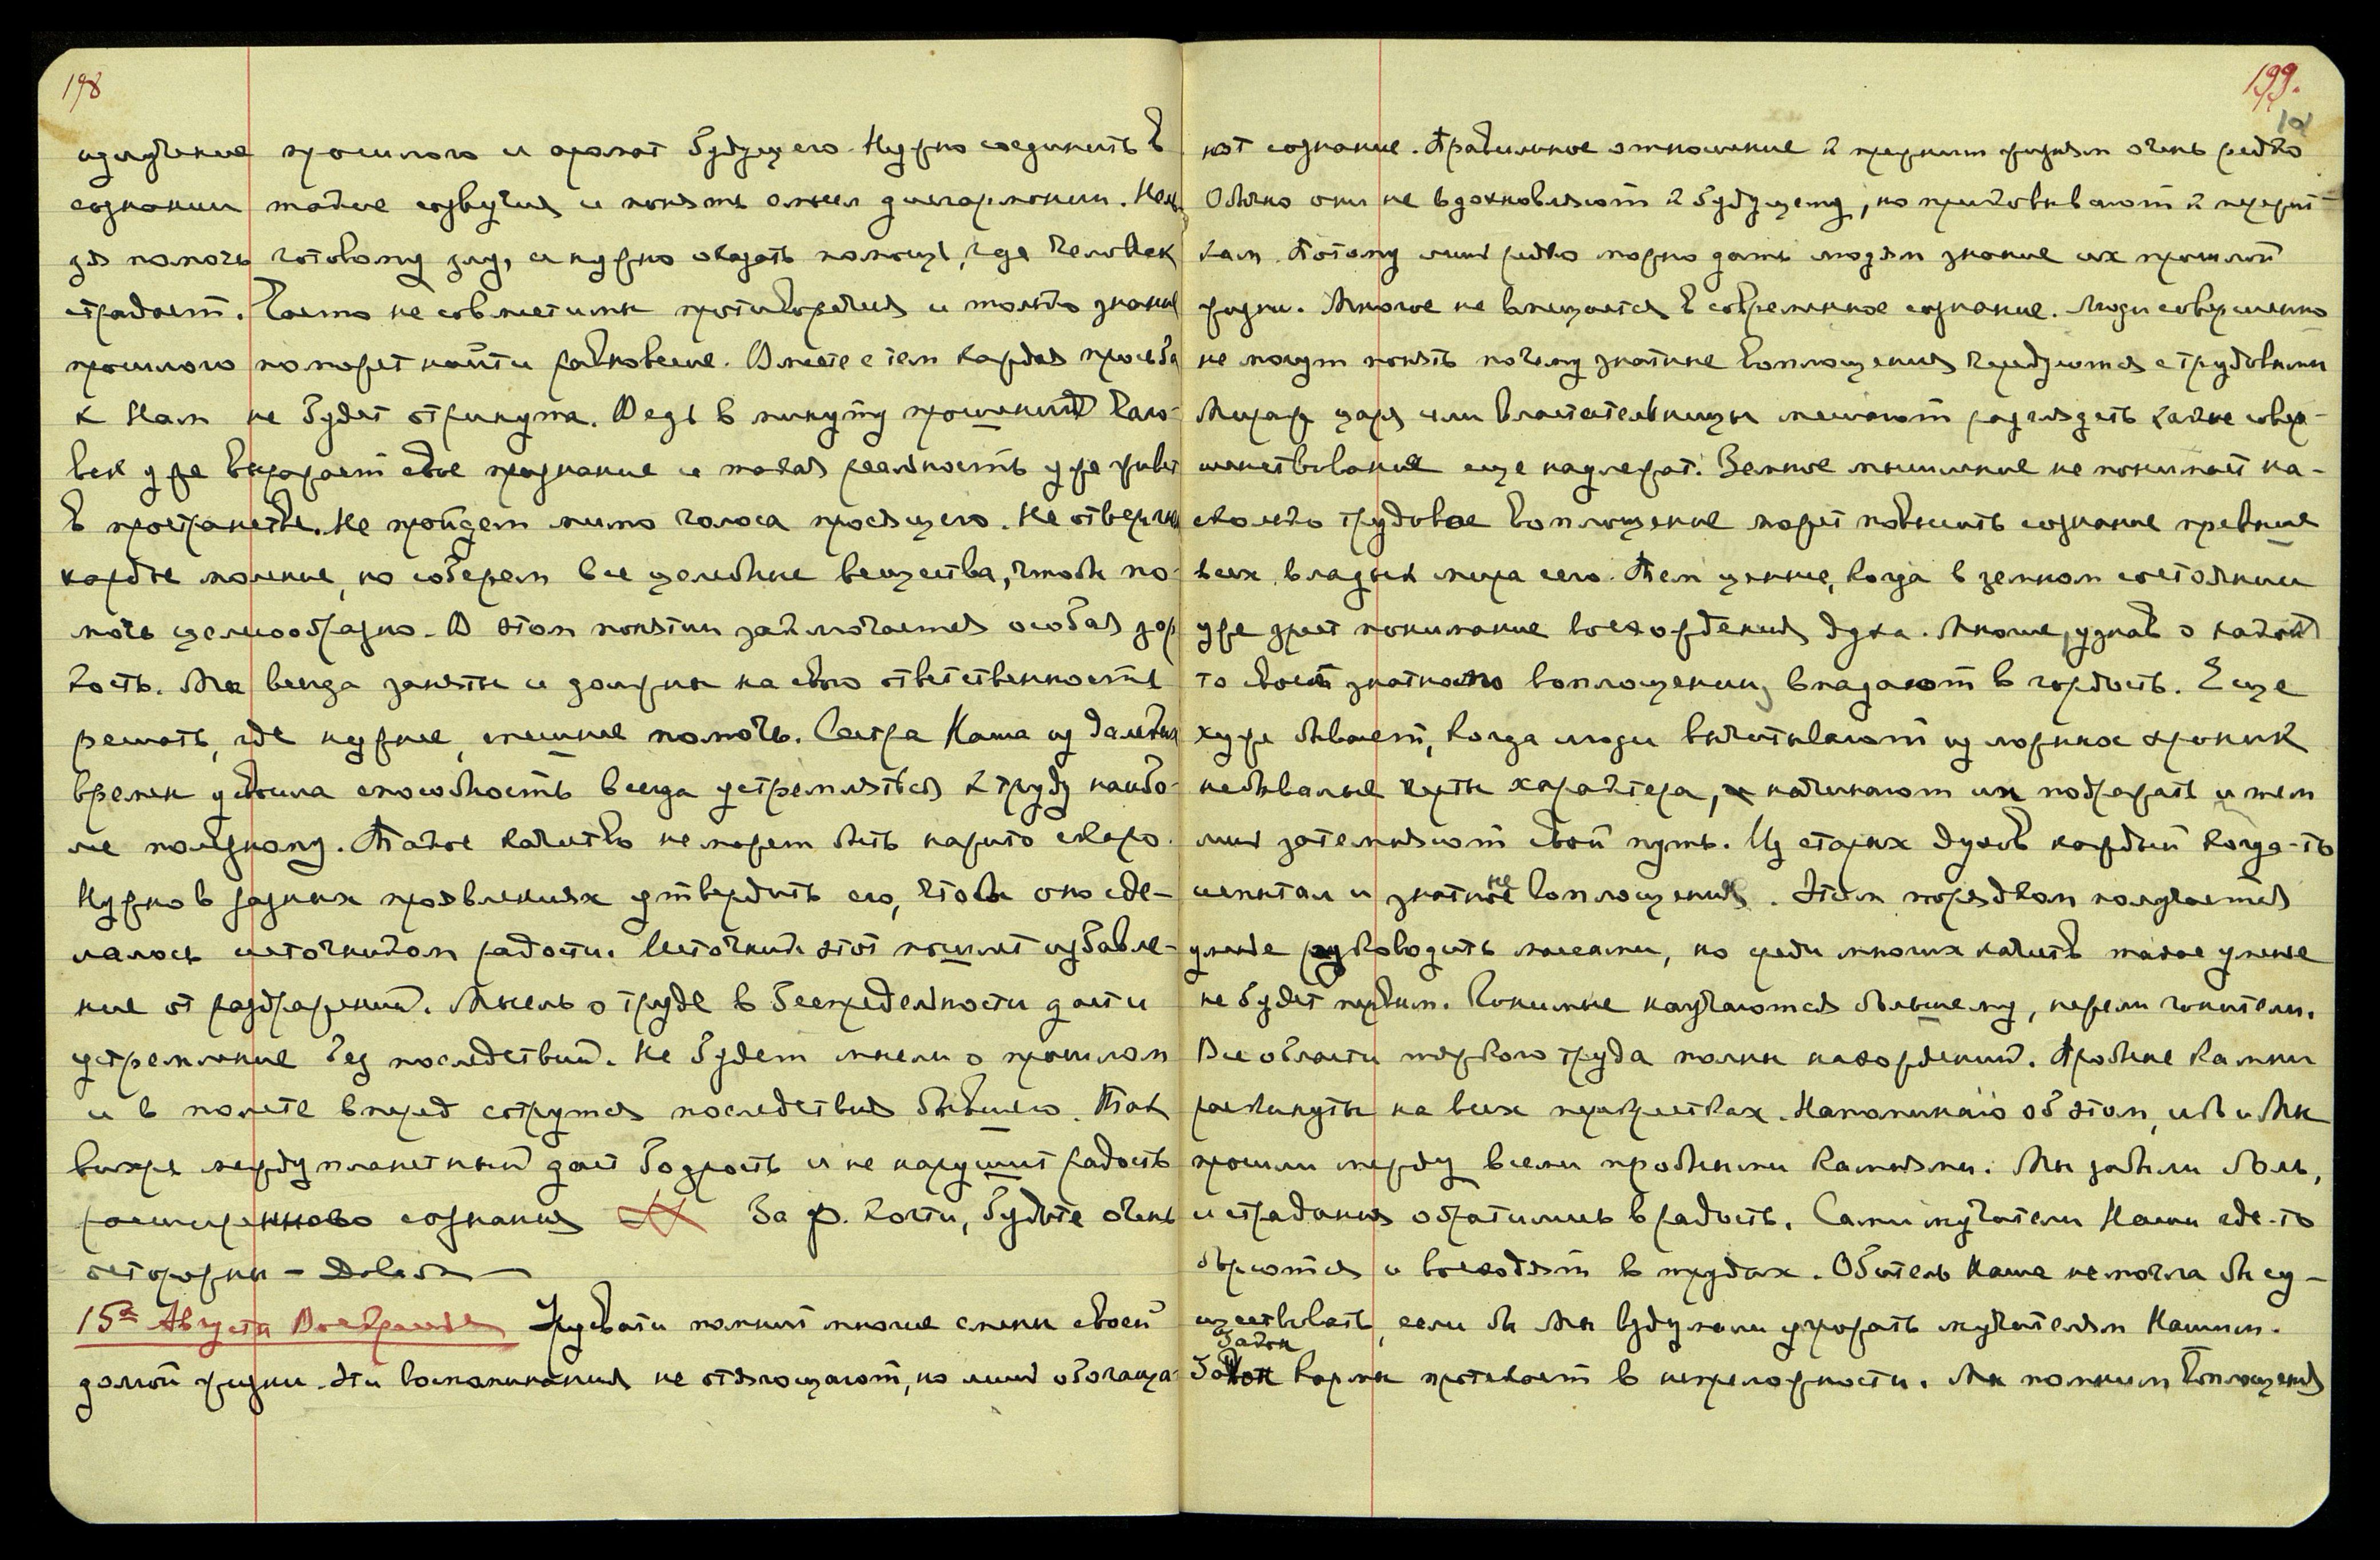 198
излучение прошлого и аромат будущего. Нужно соединить в
сознании такие созвучия и понять смысл дисгармонии. Нель
зя помочь готовому злу, и нужно оказать помощь, где человек
страдает. Часто несовместимы противоречия и только знание
прошлого поможет найти равновесие. Вместе с тем каждая просьба
к Нам не будет отринута. Ведь в минуту прошений чело-
век уже выражает свое признание и такая реальность уже живет
в пространстве. Не пройдем мимо голоса просящего. Не отвергнем
каждое моление, но соберем все целебные вещества, чтобы по-
мочь целесообразно. В этом понятии заключается особая зор
кость. Мы всегда заняты и должны на свою ответственность
решать, где нужнее, спешнее помочь. Сестра Наша из далеких
времен усвоила способность всегда устремляться к труду наибо-
лее полезному. Такое качество не может быть нажито скоро.
Нужно в разных проявлениях утвердить его, чтобы оно сде-
лалось источником радости. Источник этот пошлет избавле-
ние от раздражений. Мысль о труде в беспредельности даст и
устремление без последствий. Не будет мысли о прошлом
и в полете вперед сотрутся последствия бывшего. Так
вихрь междупланетный дает бодрость и не нарушит радость
расширенного сознания За р. кости, будьте очень
осторожны —
15го Августа Воскресенье Урусвати помнит многие смены своей
долгой жизни. Эти воспоминания не отягощают, но лишь обогаща-
199.
101
ют сознание. Правильное отношение к прежним жизням очень редко
Обычно они не вдохновляют к будущему, но приковывают к пережит-
кам. Потому лишь редко можно дать людям знание их прошлой
жизни. Многое не вмещается в современное сознание. Люди совершенно
не могут понять почему знатные воплощения чередуются с трудовыми
Мираж царя или властительницы мешают разглядеть какие совер-
шенствования еще надлежат. Земное мышление не понимает на-
сколько трудовое воплощение может повысить сознание превыше
всех владык мира сего. Тем ценнее, когда в земном состоянии
уже зреет понимание восхождения духа. Многие, узнав о какой
то своей знатном воплощении, впадают в гордость. Еще
хуже бывает, когда люди вычитывают из ложных хроник
небывалые черты характера, начинают им подражать и тем
лишь затемняют свой путь. Из старых духов каждый когда-то
испытал и знатное воплощение. Этим порядком получается
уменье руководить массами, но среди многих качеств такое уменье
не будет первым. Гонимые научаются большему, нежели гонители.
Все области тяжкого труда полны нахождений. Пробные камни
раскинуты на всех перекрестках. Напоминаю об этом, ибо и Мы
прошли между всеми пробными камнями. Мы забыли боль,
и страдания обратились в радость. Сами мучители Наши где-то
борются и восходят в трудах. Обитель Наша не могла бы су-
ществовать, если бы Мы вздумали угрожать мучителям Нашим.
Закон
Закон кармы протекает в непреложности. Мы помним воплощения